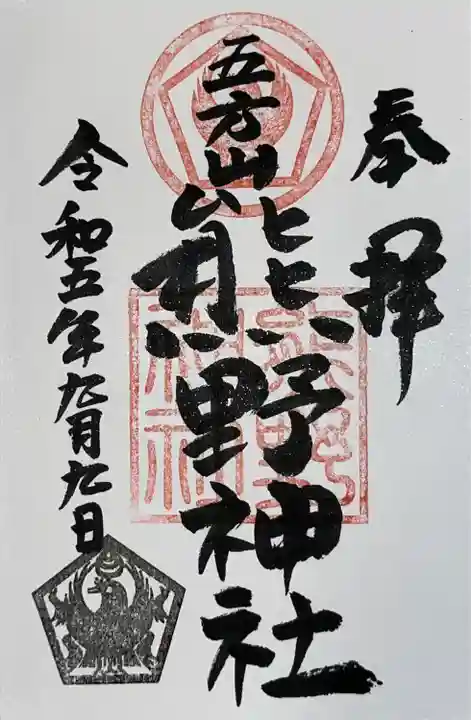 奉拝
五方山
熊野神社
熊野神社
令和五年九月九日